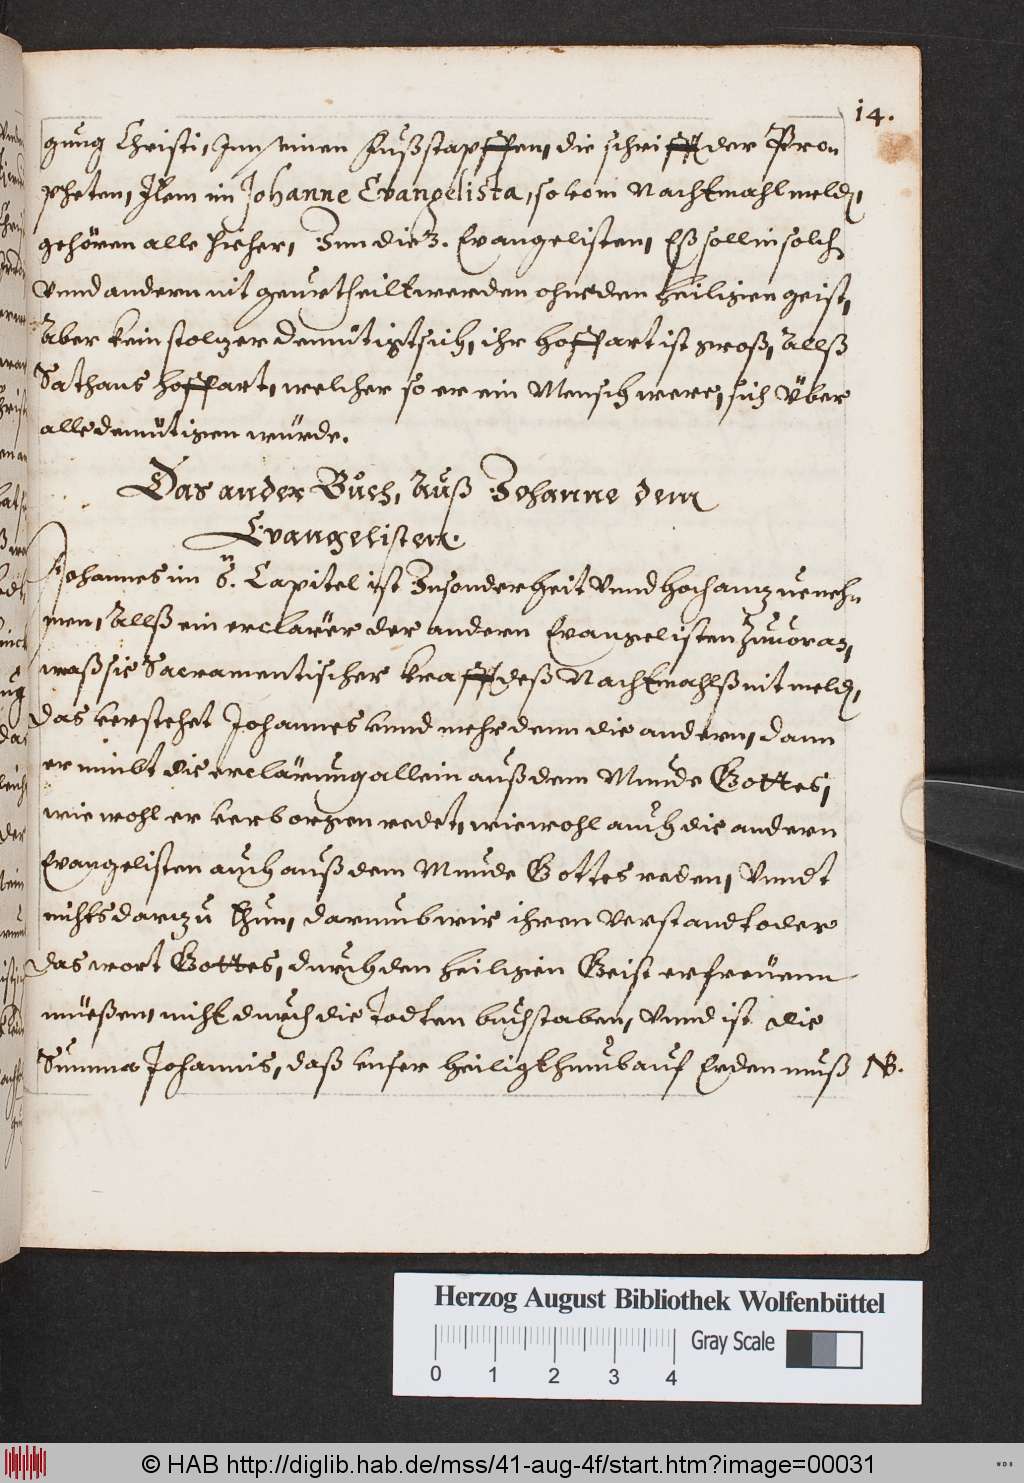 14.
gung Christi, Inn seinen Fußstapffen, die schrifft der Pro⸗
pheten, Item im Johanne Evangelista, so vom Nachtmahl meld̃,
gehören alle hieher, Inn die 3. Evangelisten, Eß soll in solch̃
Vnnd andern nit geurtheilt werden ohne den heiligen geist,
Aber kein stoltzer demütigt sich, ihr hoffart ist groß, Allß
Sathans hoffart, welcher so er ein Mensch were, sich Über
alle demütigen würde.
Das ander Buch, Auß Johanne dem
Evangelisten.
Johannes im 6. Capitel ist Insonderheit Vnnd hoch anzuneh⸗
men, Allß ein erclärer der andern Evangelisten Zuuoraz,
waß sie Sacramentischer krafft deß Nachtmahlß nit meld̃,
das verstehet Johannes vnnd mehr denn die andern, dann
er nimbt die erclärung allein auß dem Munde Gottes,
wiewohl er verborgen redet, wiewohl auch die andern
Evangelisten auch auß dem Munde Gottes reden, Vnndt
nichts darzu thun, darumb wir ihren Verstandt oder
das wort Gottes, durch den heiligen Geist erfreüenn
müeßen, nicht durch die Todten buchstaben, Vnnd ist die
Summa Johannis, daß vnser heiligthumb auf Erden muß NB.
Herzog August Bibliothek Wolfenbüttel
Gray Scale
0 1 2 3 4
© HAB http://diglib.hab.de/mss/41-aug-4f/start.htm?image=00031